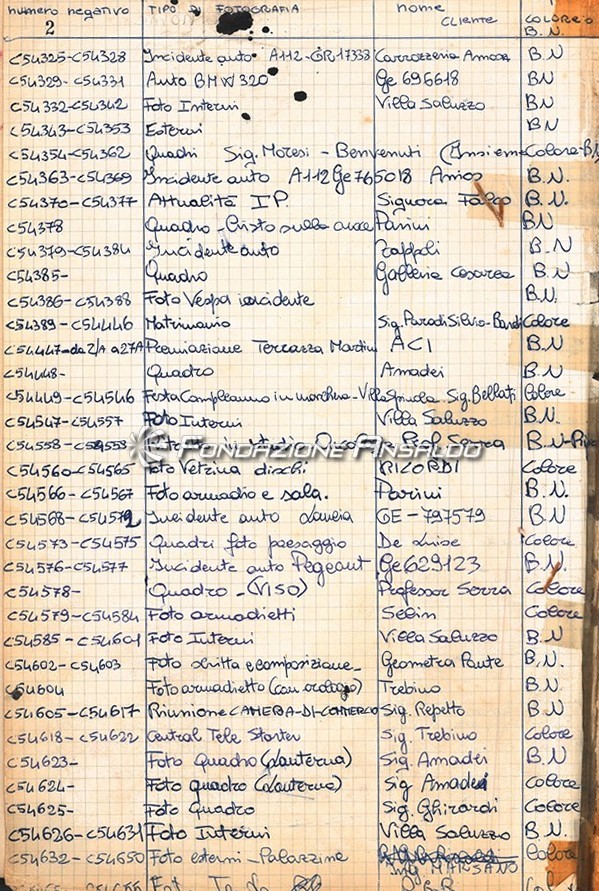 numero negativo TIPO DI FOTOGRAFIA nome CLIENTE COLORE o B.N.
2
C54325-C54328 Incidente auto A112-GR17333 Carrozzeria Amos B.N
C54329-C54331 Auto BMW 320 Ge 696618 BN
C54332-C54342 Foto Interni Villa Saluzzo BN
C54343-C54353 Esterni BN
C54354-C54362 Quadri Sig. Moresi - Benvenuti (Insieme Colore-B.N
C54363-C54369 Incidente auto A112 Ge 765018 Amos B.N.
C54370-C54377 Attualità I P. Signora Falco B.N.
C54378 Quadro - Cristo sulla croce Parini BN
C54379-C54384 Incidente auto Zappoli B.N
C54385- Quadro Galleria cesarea B.N
C54386-C54388 Foto Vespa incidente B.N.
C54389-C54446 Matrimonio Sig. Parodi Silvio- Colore
C54447-da 2/A a 27A Premiazione Terrazza Martini ACI B.N
C54448- Quadro Amadei B.N
C54449-C54546 Festa Compleanno in maschera-Villa Spinola Sig. Bellati Colore
C54547-C54557 Foto Interni Villa Saluzzo B.N.
C54558- Foto Prof. Serra B.N-
FONDAZIONE ANSALDO
C54560-C54565 Foto Vetrina dischi RICORDI Colore
C54566-C54567 Foto armadio e sala. Parini B.N.
C54568-C54572 Incidente auto Lancia GE-797579 B.N
C54573-C54575 Quadri foto paesaggio De Luise Colore
C54576-C54577 Incidente auto Pegeaut Ge 629123 B.N.
C54578- Quadro-(VISO) Professor Serra Colore
C54579-C54584 Foto armadietti Selin Colore
C54585-C54601 Foto Interni Villa Saluzzo B.N
C54602-C54603 Foto e composizione- Geometra Ponte B.N.
C54604 Foto armadietto (con orologio) Trebino B.N.
C54605-C54617 Riunione CAMERA-DI-COMMERCIO Sig. Repetto B.N.
C54618-C54622 Central Tele Starter Sig. Trebino Colore
C54623- Foto Quadro (Lanterna) Sig. Amadei B.N
C54624- Foto quadro (Lanterna) Sig Amadei Colore
C54625- Foto Quadro Sig. Ghirardi Colore
C54626-C54631 Foto Interni Villa Saluzzo B.N.
C54632-C54650 Foto esterni-Palazzine Ing MARSANO Colore